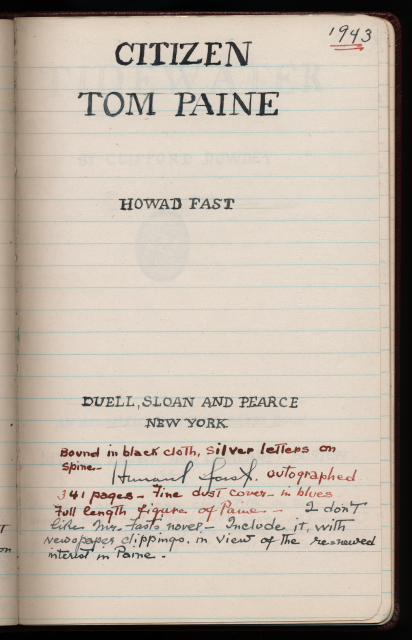 1943
CITIZEN
TOM PAINE
HOWAD FAST
DUELL, SLOAN AND PEARCE
NEW YORK
Bound in black cloth, silver letters on
spine.-
Howard Fast. autographed
341 pages - Fine dust cover - in blues
Full length figure of Paine - I don't
like Mr. Fasts novel - Include it, with
newspaper clippings, in view of the renewed
interest in Paine.
TIDEWATER
BY CLIFFORD DOWDEY
T
on